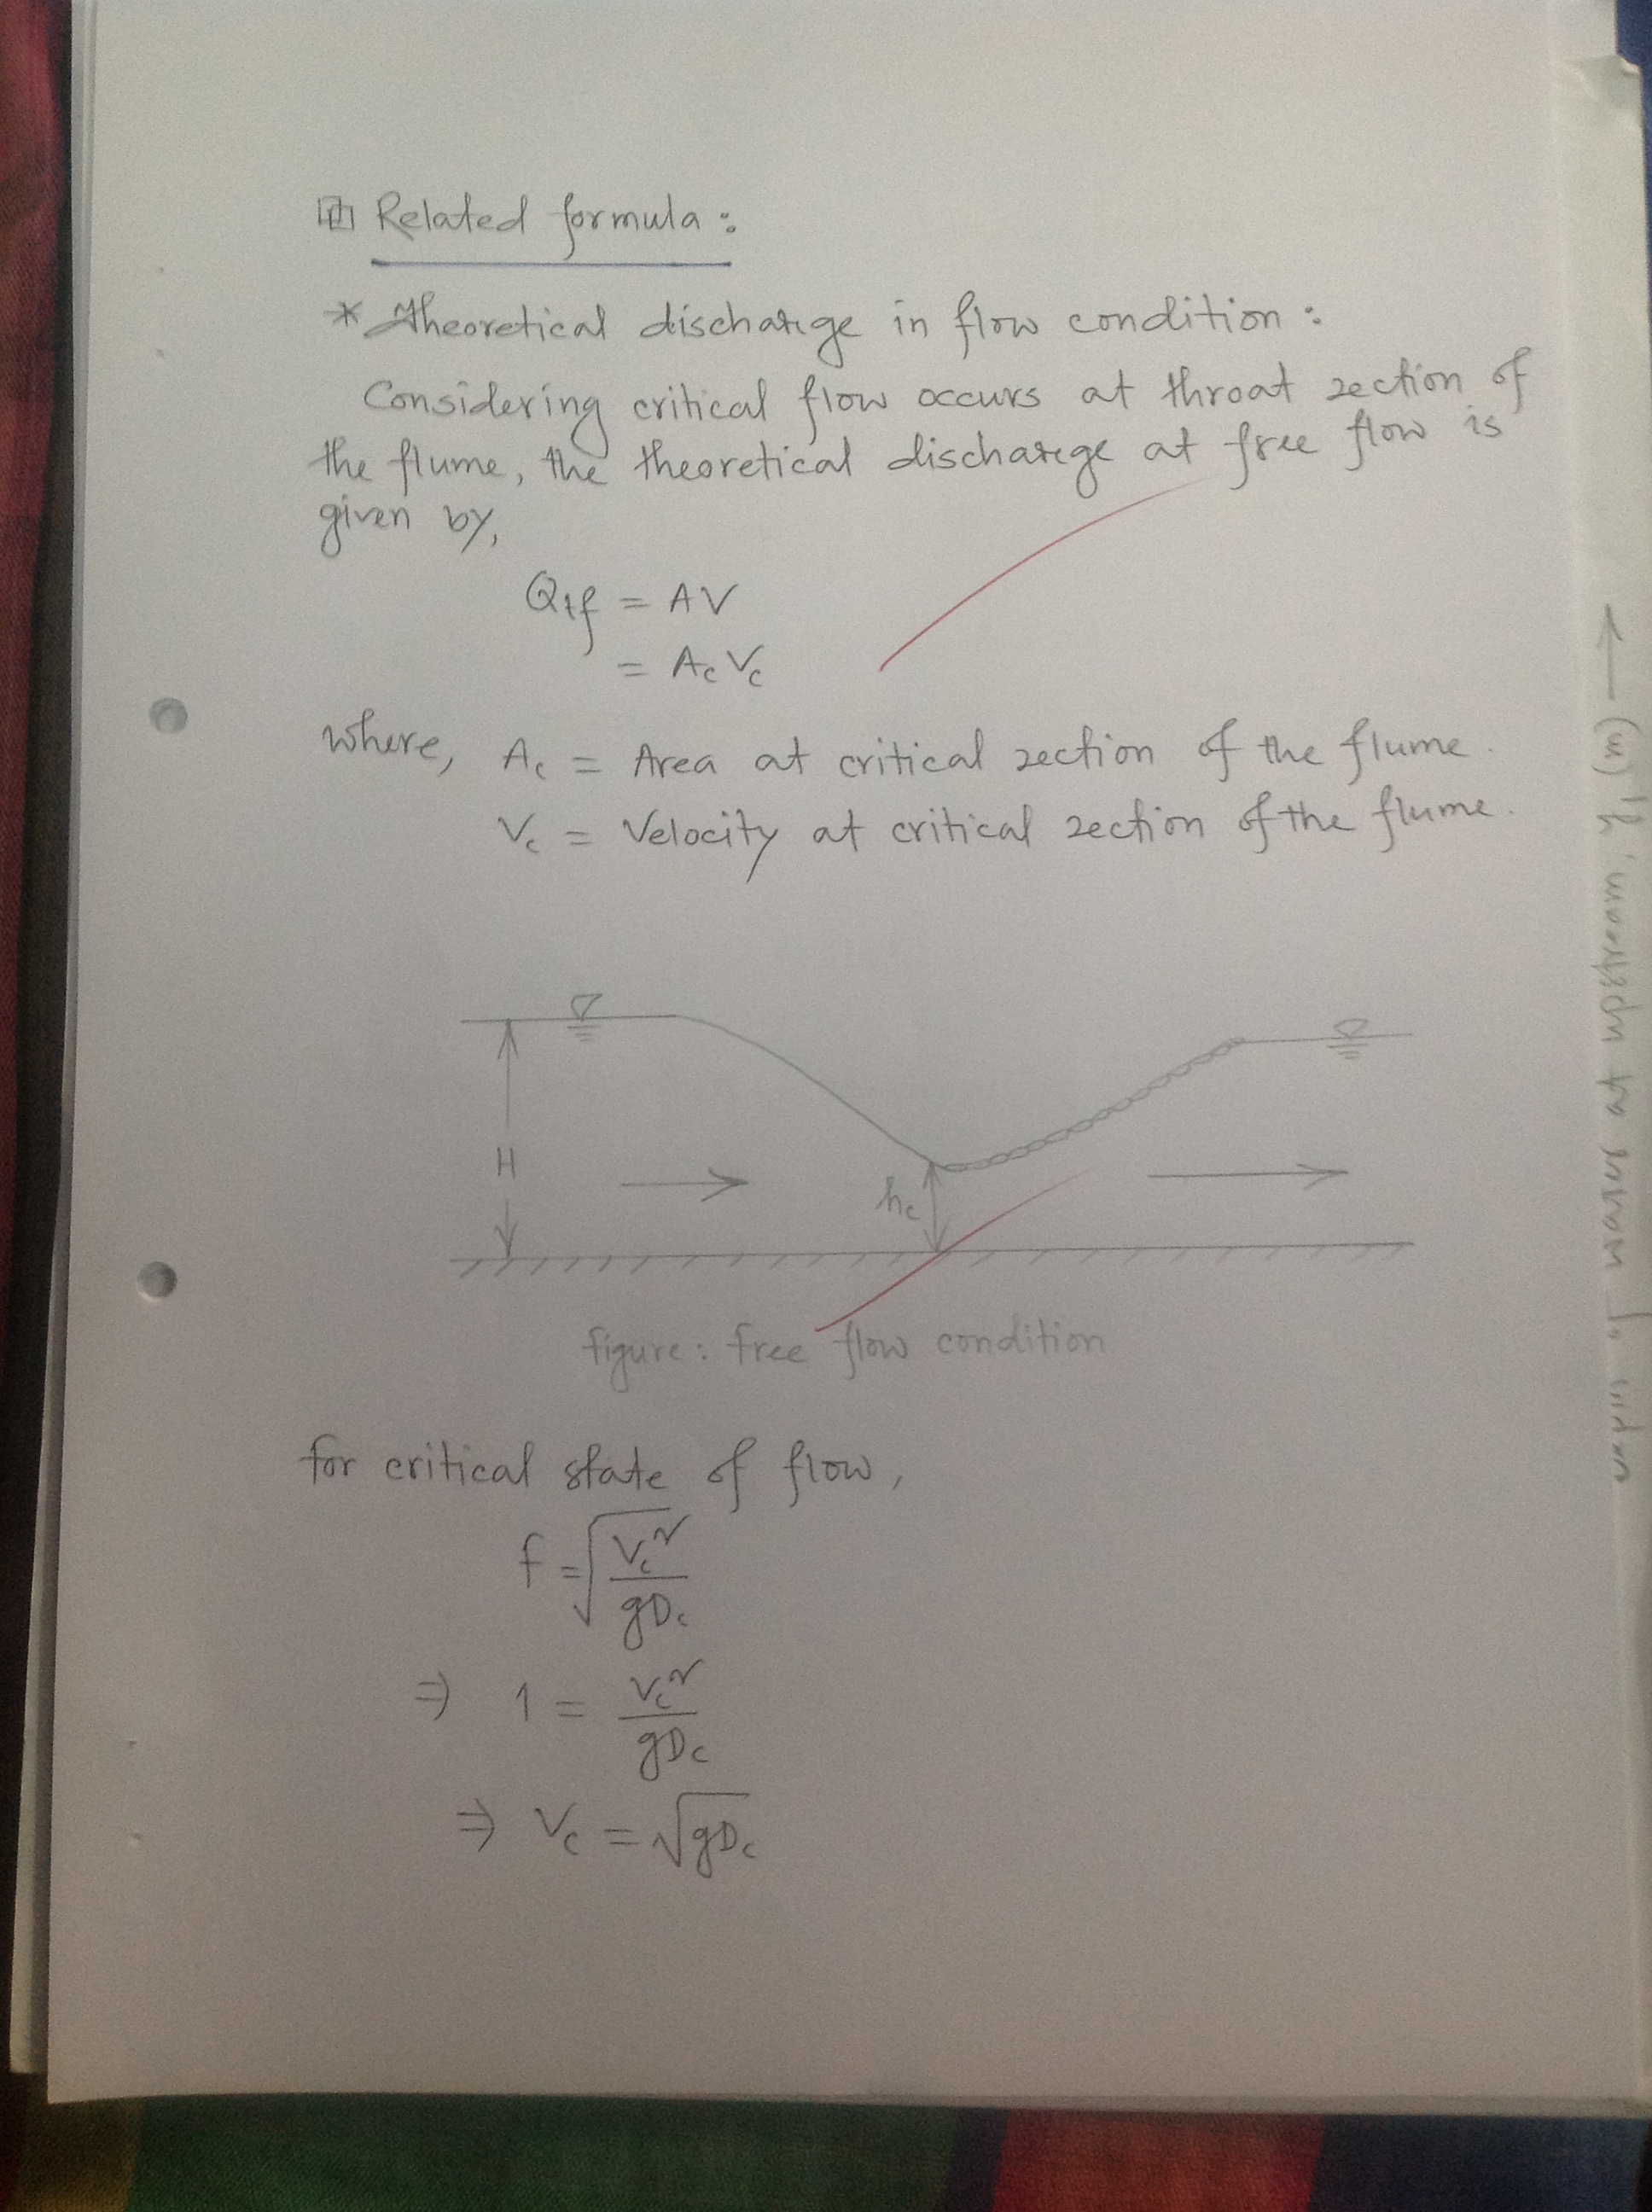 Related formula :
* Theoretical discharge in flow condition :
Considering critical flow occurs at throat section of
the flume, the theoretical discharge at free flow is
given by,
Qtf = AV
= Ac Vc
where, Ac = Area at critical section of the flume.
Vc = Velocity at critical section of the flume.
H
hc
figure: free flow condition
for critical state of flow,
f = √(Vc²/gDc)
⇒ 1 = Vc²/gDc
⇒ Vc = √gDc
water at upstream, y1 (m) →